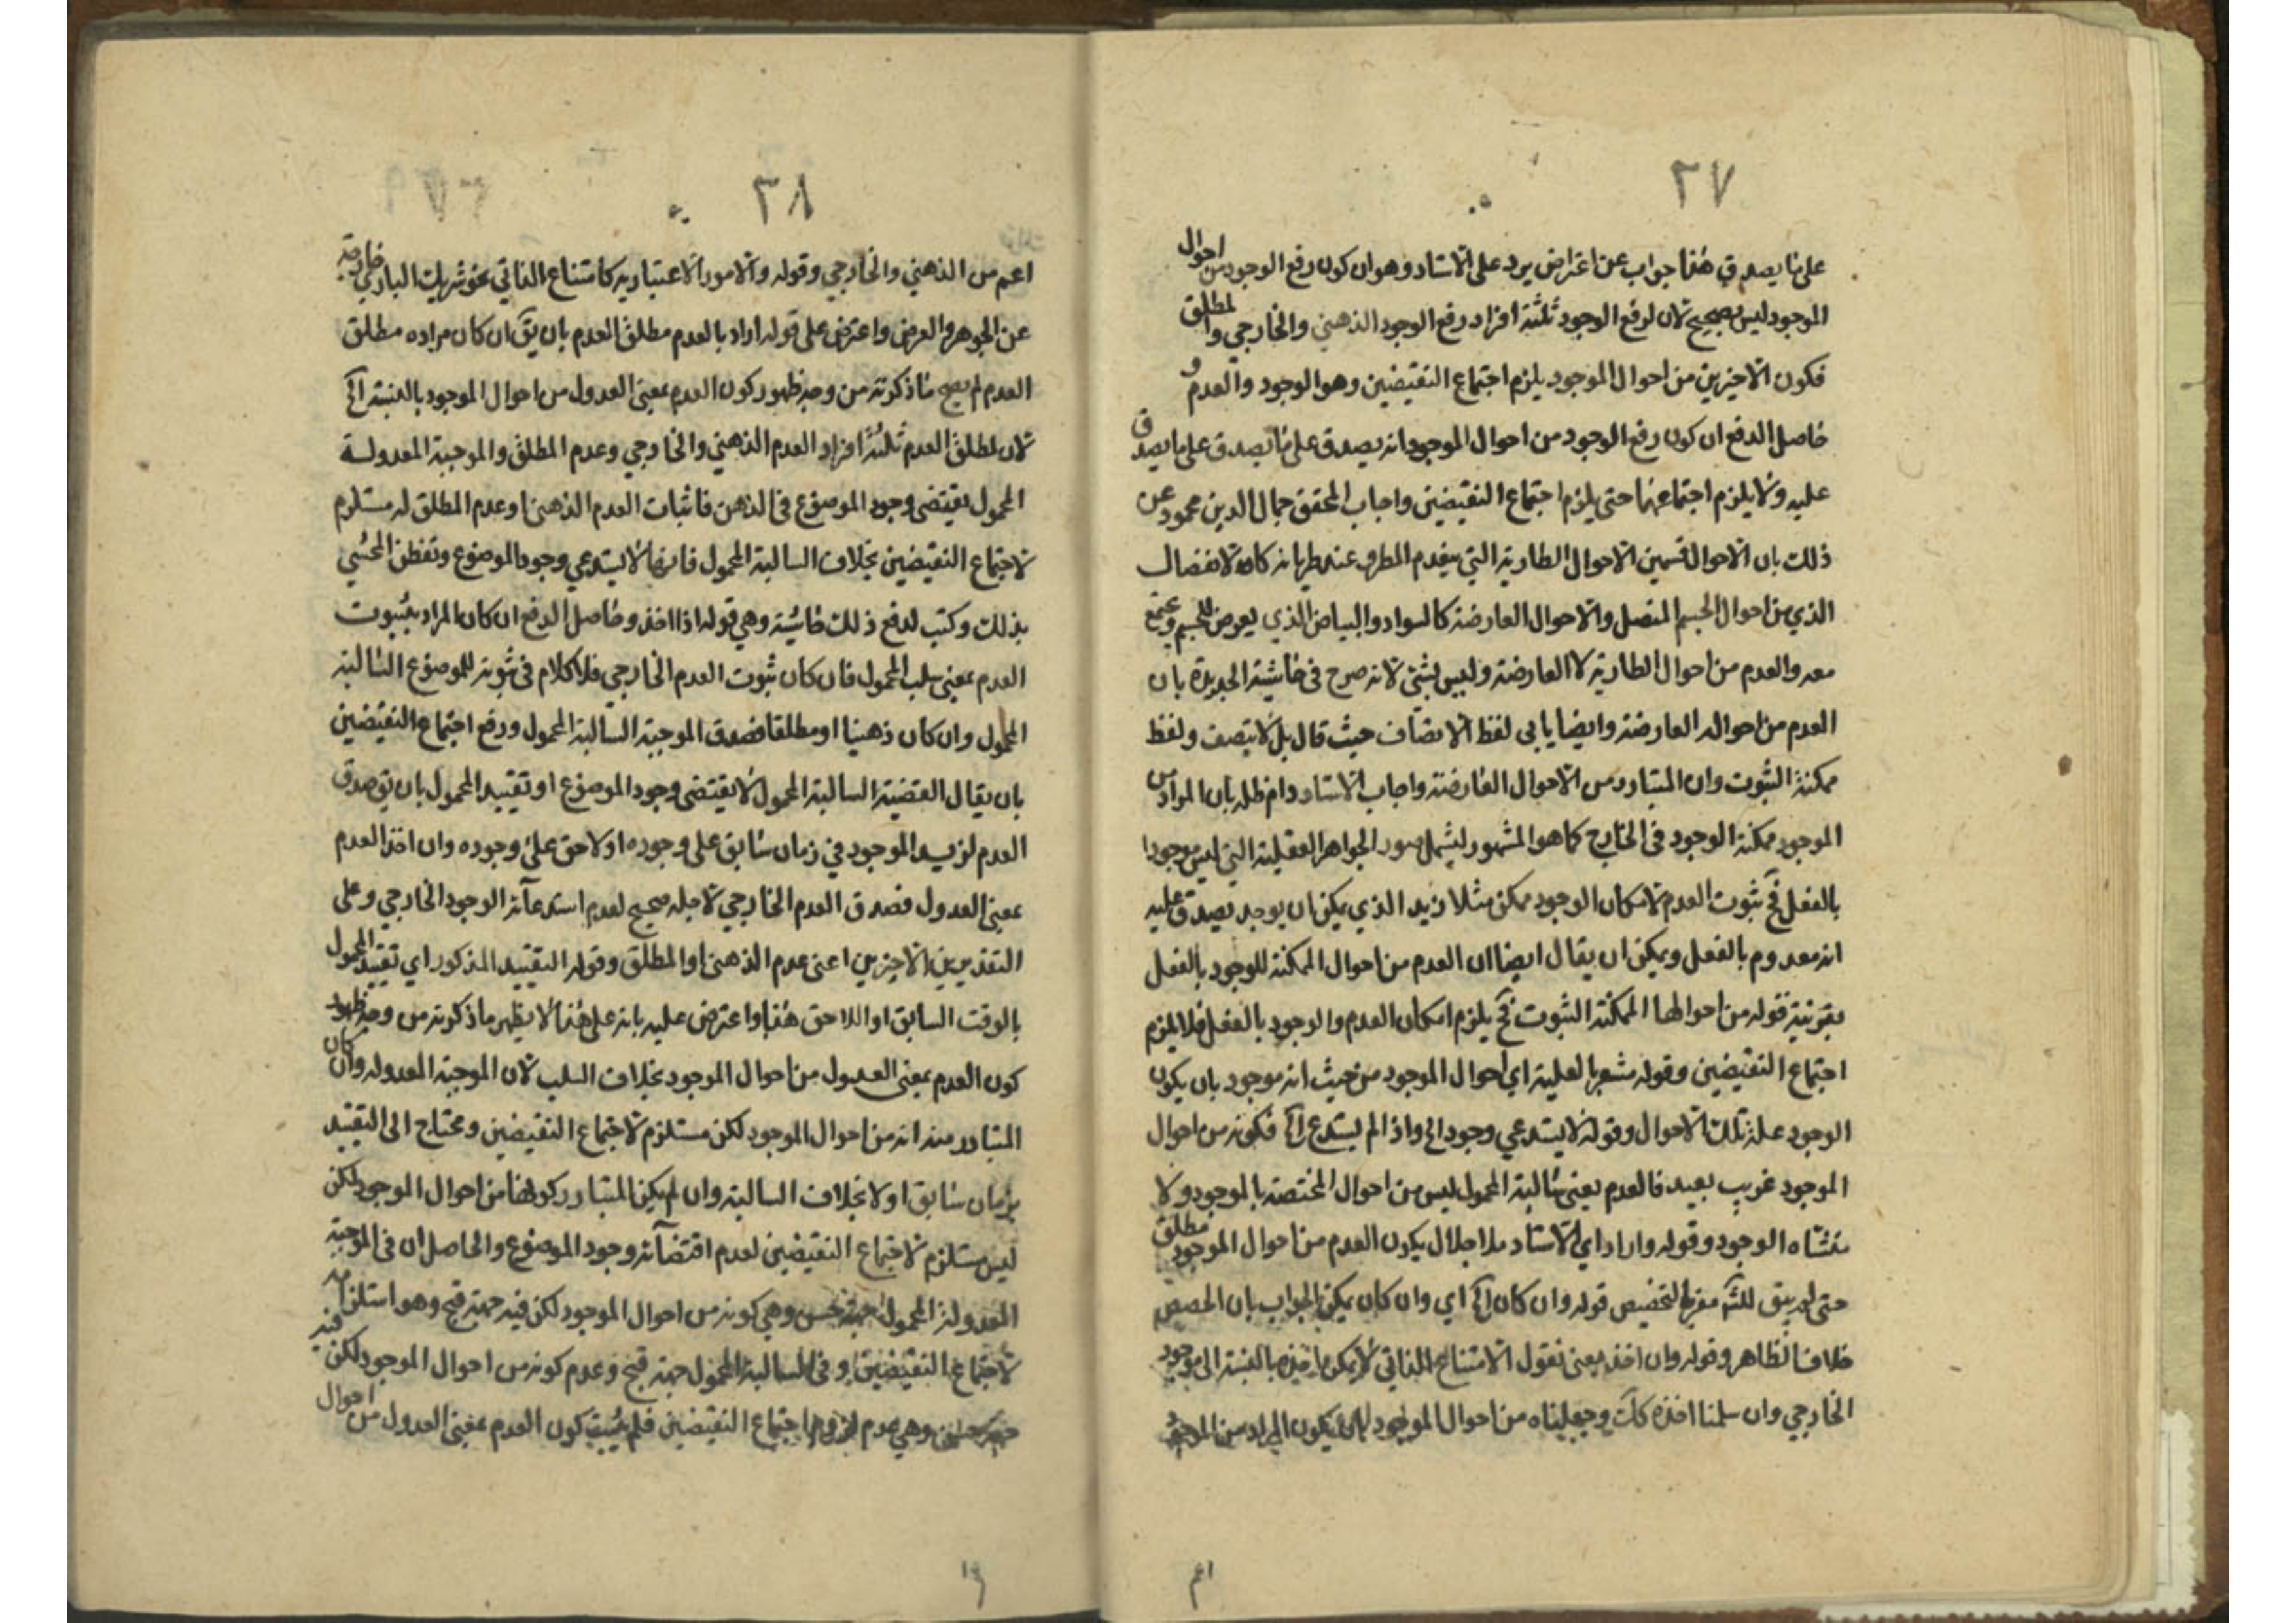 ٣٧
على ما يصدق هذا جواب عن اعتراض يرد على الاستاد وهو ان كون رفع الوجود من احوال
الموجود ليس بصحيح لان لرفع الوجود ثلثة افراد رفع الوجود الذهني والخارجي والمطلق
فكون الاخيرين من احوال الموجود يلزم اجتماع النقيضين وهو الوجود والعدم و
حاصل الدفع ان كون رفع الوجود من احوال الموجود انه يصدق على ما يصدق على ما يصدق
عليه ولا يلزم اجتماعهما حتى يلزم اجتماع النقيضين واجاب المحقق جمال الدين محمود عن
ذلك بان الاحوال قسمين الاحوال الطارية التي ينعدم المطرو عند طريانه كالانفصال
الذي من احوال الجسم المتصل والاحوال العارضة كالسواد والبياض الذي يعرض للجسم ويجتمع
معه والعدم من احوال الطارية لا العارضة وليس بشئ لانه صرح في حاشية الجديدة بان
العدم من احواله العارضة وايضا يابى لفظ الاتصاف حيث قال بل لا يتصف ولفظ
ممكنة الثبوت وان المتبادر من الاحوال العارضة واجاب الاستاد دام ظله بان المراد من
الموجود ممكنة الوجود في الخارج كما هو المشهور ليشمل صور الجواهر العقلية التي ليس موجودا
بالفعل فح ثبوت العدم لامكان الوجود ممكن مثلا زيد الذي يمكن ان يوجد يصدق عليه
انه معدوم بالفعل ويمكن ان يقال ايضا ان العدم من احوال الممكنة للوجود بالفعل
بقرينة قوله من احوالها الممكنة الثبوت فح يلزم امكان العدم والوجود بالفعل فلا يلزم
اجتماع النقيضين وقوله مشعر بالعلية اي احوال الموجود من حيث انه موجود بان يكون
الوجود علة تلك الاحوال وقوله لا يستدعي وجود الخ واذا لم يستدع الخ فكونه من احوال
الموجود غريب بعيد فالعدم بمعنى سالبة المحمول ليس من احوال المختصة بالموجود ولا
منشاه الوجود وقوله واراد اي الاستاد ملا جلال يكون العدم من احوال الموجود مطلق
حتى لم يبق للشـ مفر بالتخصيص قوله وان كان الخ اي وان كان يمكن الجواب بان الحصص
خلاف الظاهر وقوله وان اخذ بمعنى نقول الامتناع الذاتي لا يمكن اخذه بالنسبة الى موجود
الخارجي وان سلمنا اخذه كك وجعلناه من احوال الموجود يكون المراد من الموجود
٤١
٣٨
اعم من الذهني والخارجي وقوله والامور الاعتبارية كامتناع الذاتي نحو شريك الباري خارجة
عن الجوهر والعرض واعترض على قوله اراد بالعدم مطلق العدم بان يق ان كان مراده مطلق
العدم لم يصح ما ذكرته من وجه ظهور كون العدم بمعنى العدول من احوال الموجود بالنسبة الخ
لان لمطلق العدم ثلثة افراد العدم الذهني والخارجي وعدم المطلق والموجبة المعدولة
المحمول يقتضي وجود الموضوع في الذهن فاثبات العدم الذهني او عدم المطلق له مستلزم
لاجتماع النقيضين بخلاف السالبة المحمول فانها لا يستدعي وجود الموضوع وتفطن المحشي
بذلك وكتب لدفع ذلك حاشية وهي قوله اذا اخذ وحاصل الدفع ان كان المراد بثبوت
العدم بمعنى سلب المحمول فان كان ثبوت العدم الخارجي فلا كلام في ثبوته للموضوع السالبة
المحمول وان كان ذهنيا او مطلقا فصدق الموجبة السالبة المحمول ورفع اجتماع النقيضين
بان يقال القضية السالبة المحمول لا يقتضي وجود الموضوع او تقييد المحمول بان يق صدق
العدم لزيد الموجود في زمان سابق على وجوده او لاحق على وجوده وان اخذ العدم
بمعنى العدول فصدق العدم الخارجي لاجله صحيح لعدم استدعائه الوجود الخارجي وعلى
التقديرين الاخيرين اعني عدم الذهني او المطلق وقوله التقييد المذكور اي تقييد المحمول
بالوقت السابق او اللاحق هذا واعترض عليه بانه على هذا لا يظهر ما ذكرته من وجه ظهور
كون العدم بمعنى العدول من احوال الموجود بخلاف السلب لان الموجبة المعدولة وان كان
المتبادر منه انه من احوال الموجود لكن مستلزم لاجتماع النقيضين ومحتاج الى التقييد
بزمان سابق اولا بخلاف السالبة وان لم يكن المتبادر كونها من احوال الموجود لكن
ليس مستلزم لاجتماع النقيضين لعدم اقتضائه وجود الموضوع والحاصل ان في الموجبة
المعدولة المحمول جهة حسن وهي كونه من احوال الموجود لكن فيه جهة قبح وهو استلزامه
لاجتماع النقيضين وفي السالبة المحمول جهة قبح وعدم كونه من احوال الموجود لكن فيه
جهة حسن وهي عدم لزومها اجتماع النقيضين فلم يثبت كون العدم بمعنى العدول من احوال